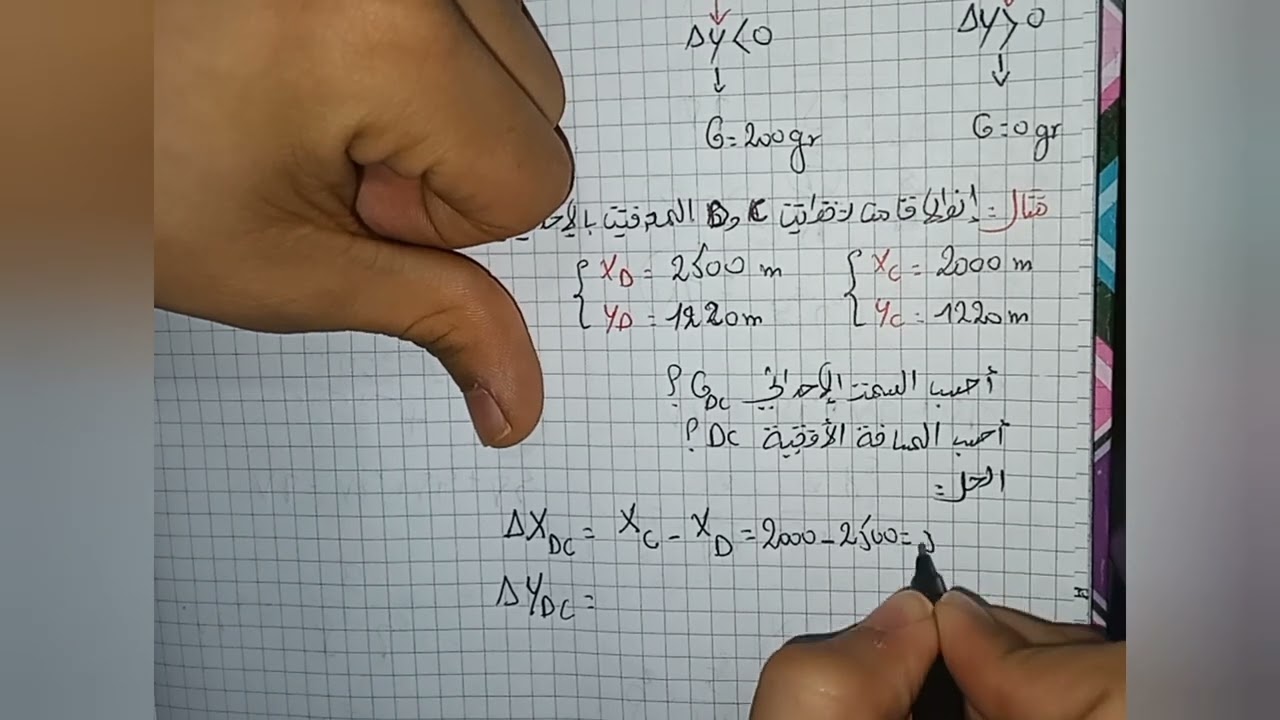 ΔY>0 ΔY<0
↓ ↓
G=0gr G=200gr
مثال: إنطلاقا من نقطتين C و D المعرفتين
{ X_C = 2000 m { X_D = 2500 m
{ Y_C = 1220m { Y_D = 1220m
أحسب السمت الإحداثي G_DC ؟
أحسب المسافة الأفقية DC ؟
الحل:
ΔX_DC = X_C - X_D = 2000 - 2500 =
ΔY_DC =